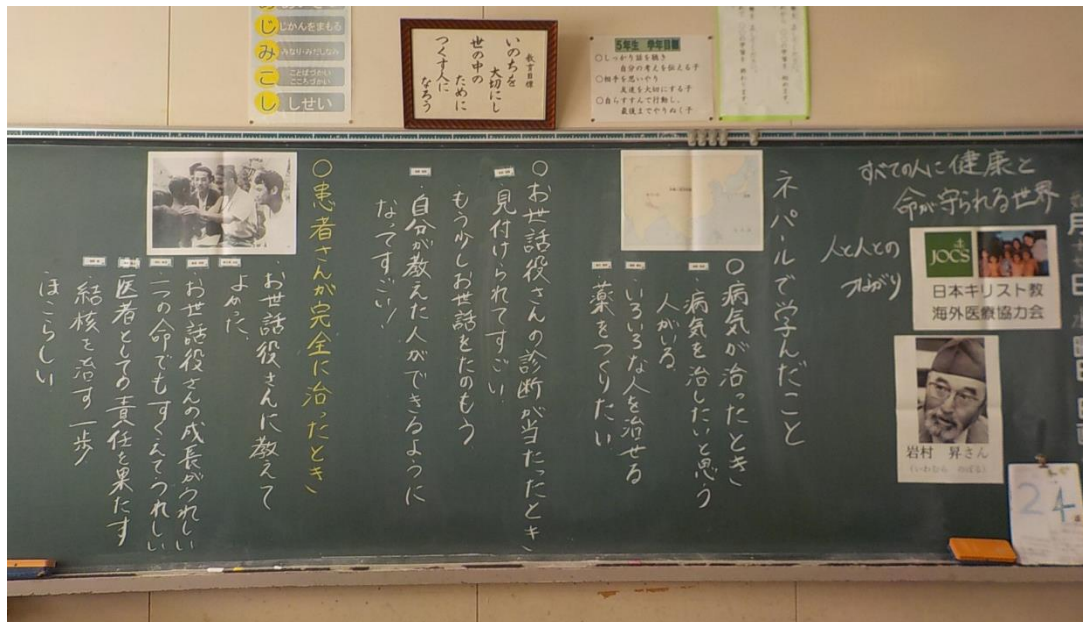 じ じかんをまもる
み みなり・みだしなみ
こ ことばづかい
こころづかい
し しせい
教育目標
いのちを
大切にし
世の中の
ために
つくす人に
なろう
5年生 学年目標
○しっかり話を聴き
自分の考えを伝える子
○相手を思いやり
友達を大切にする子
○自らすすんで行動し、
最後までやりぬく子
すべての人に健康と
命が守られる世界
人と人との
つながり
JOCS
日本キリスト教
海外医療協力会
岩村 昇さん
(いわむら のぼる)
24
ネパールで学んだこと
○病気が治ったとき
・病気を治したいと思う
人がいる。
・いろいろな人を治せる
薬をつくりたい
○お世話役さんの診断が当たったとき
・見付けられてすごい
もう少しお世話をたのもう
・自分が教えた人ができるように
なってすごい!
○患者さんが完全に治ったとき
・お世話役さんに教えて
よかった。
・お世話役さんの成長がうれしい
・一つの命でもすくえてうれしい
・医者としての責任を果たす
・結核を治す一歩
・ほこらしい